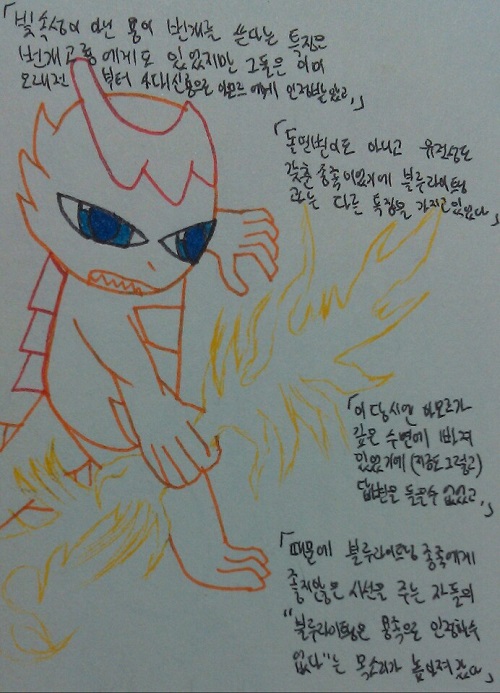 「빛속성이 아닌 용이 번개를 쓴다는 특징은
번개고룡에게도 있었지만 그들은 이미
오래전 부터 4대신룡으로 아모르 에게 인정받았고,」
「돌연변이도 아니고 유전성도
갖춘 종족이었기에 블루라이트닝
과는 다른 특징을 가지고 있었다」
「이 당시엔 아모르가
깊은 수면에 빠져
있었기에 (지금도 그렇고)
답변을 들을수 없었고,」
「때문에 블루라이트닝 종족에게
좋지않은 시선을 주는 자들의
"블루라이트닝은 용족으로 인정할수
없다"는 목소리가 높아져 갔다」